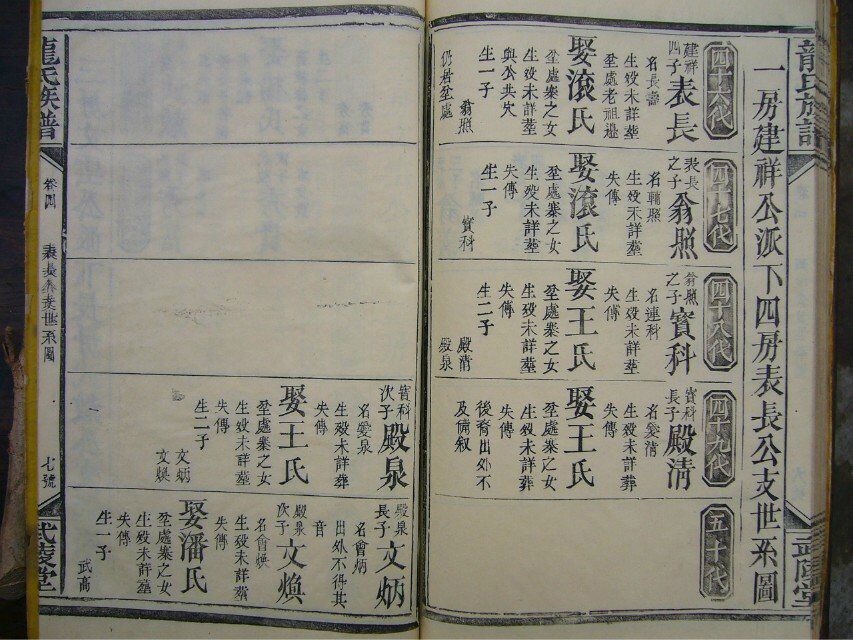 龍氏族譜
一房建祥公派下四房表長公支世系圖
四十六代
建祥
四子
表長
名長壽
生歿未詳葬
坌處老祖邊
娶滾氏
坌處寨之女
生歿未詳葬
與公共穴
生一子
翁照
仍居坌處
四十七代
表長
之子
翁照
名輔照
生歿未詳葬
失傳
娶滾氏
坌處寨之女
生歿未詳葬
失傳
生一子
寳科
四十八代
翁照
之子
寳科
名連科
生歿未詳葬
失傳
娶王氏
坌處寨之女
生歿未詳葬
失傳
生二子
殿清
殿泉
四十九代
寳科
長子
殿清
名愛清
生歿未詳葬
失傳
娶王氏
坌處寨之女
生歿未詳葬
失傳
後裔出外不
及俻叙
五十代
寳科
次子
殿泉
名愛泉
生歿未詳葬
失傳
娶王氏
坌處寨之女
生歿未詳葬
失傳
生二子
文炳
文煥
殿泉
長子
文炳
名會炳
出外不得其
音
殿泉
次子
文煥
名會煥
生歿未詳葬
失傳
娶潘氏
坌處寨之女
生歿未詳葬
失傳
生一子
武高
龍氏族譜
卷四
表長公支世系圖
七號
武陵堂